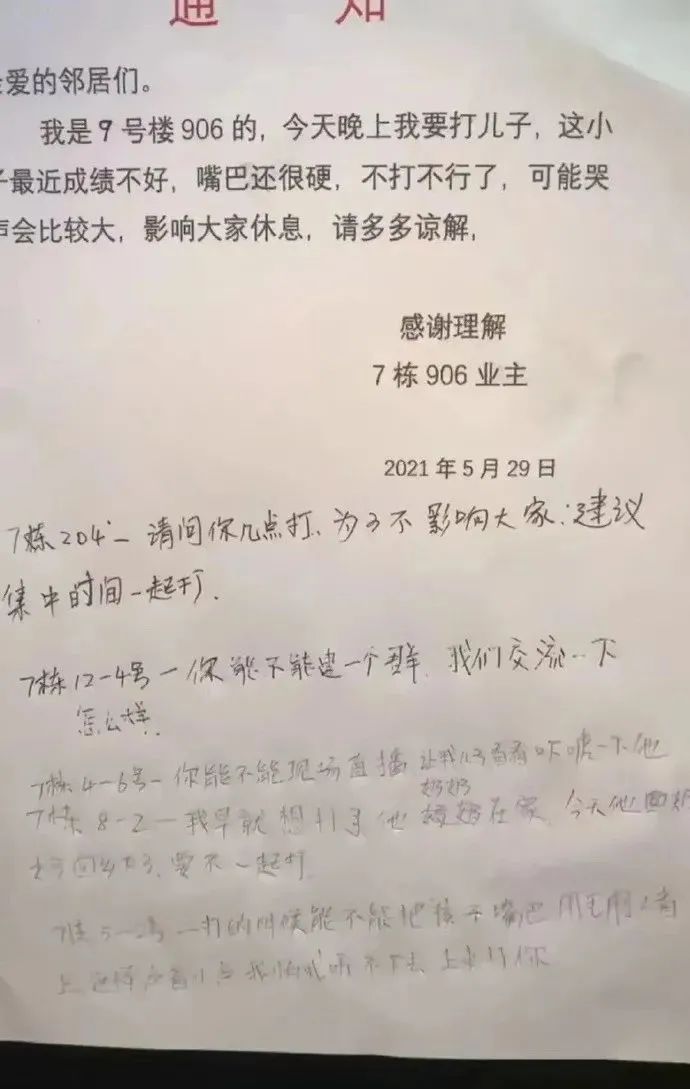 通 知
爱的邻居们。
我是9号楼906的，今天晚上我要打儿子，这小
子最近成绩不好，嘴巴还很硬，不打不行了，可能哭
声会比较大，影响大家休息，请多多谅解，
感谢理解
7栋906业主
2021年5月29日
7栋204一请问你几点打、为了不影响大家:建议
集中时间一起打.
7栋12-4号一你能不能建一个群.我们交流一下
怎么样.
7栋4-6号一你能不能现场直播让我儿子看看吓唬一下他
奶奶
7栋8-2一我早就想打了他 在家.今天他
回 了.要不一起打.
一打的时候能不能把孩子嘴巴用毛
上 我怕我听不下去上来打你